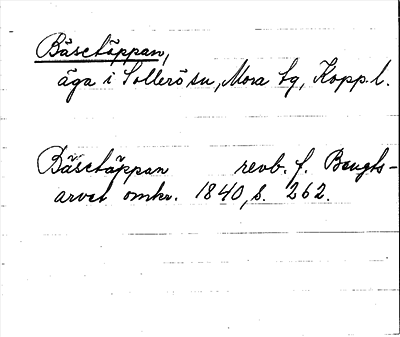 Bäsctäppan,
äga i Sollerö sn, Mora tg, Kopp. l.
Bäsctäppan revb. f. Bengts-
arvet omkr. 1840, s. 262.